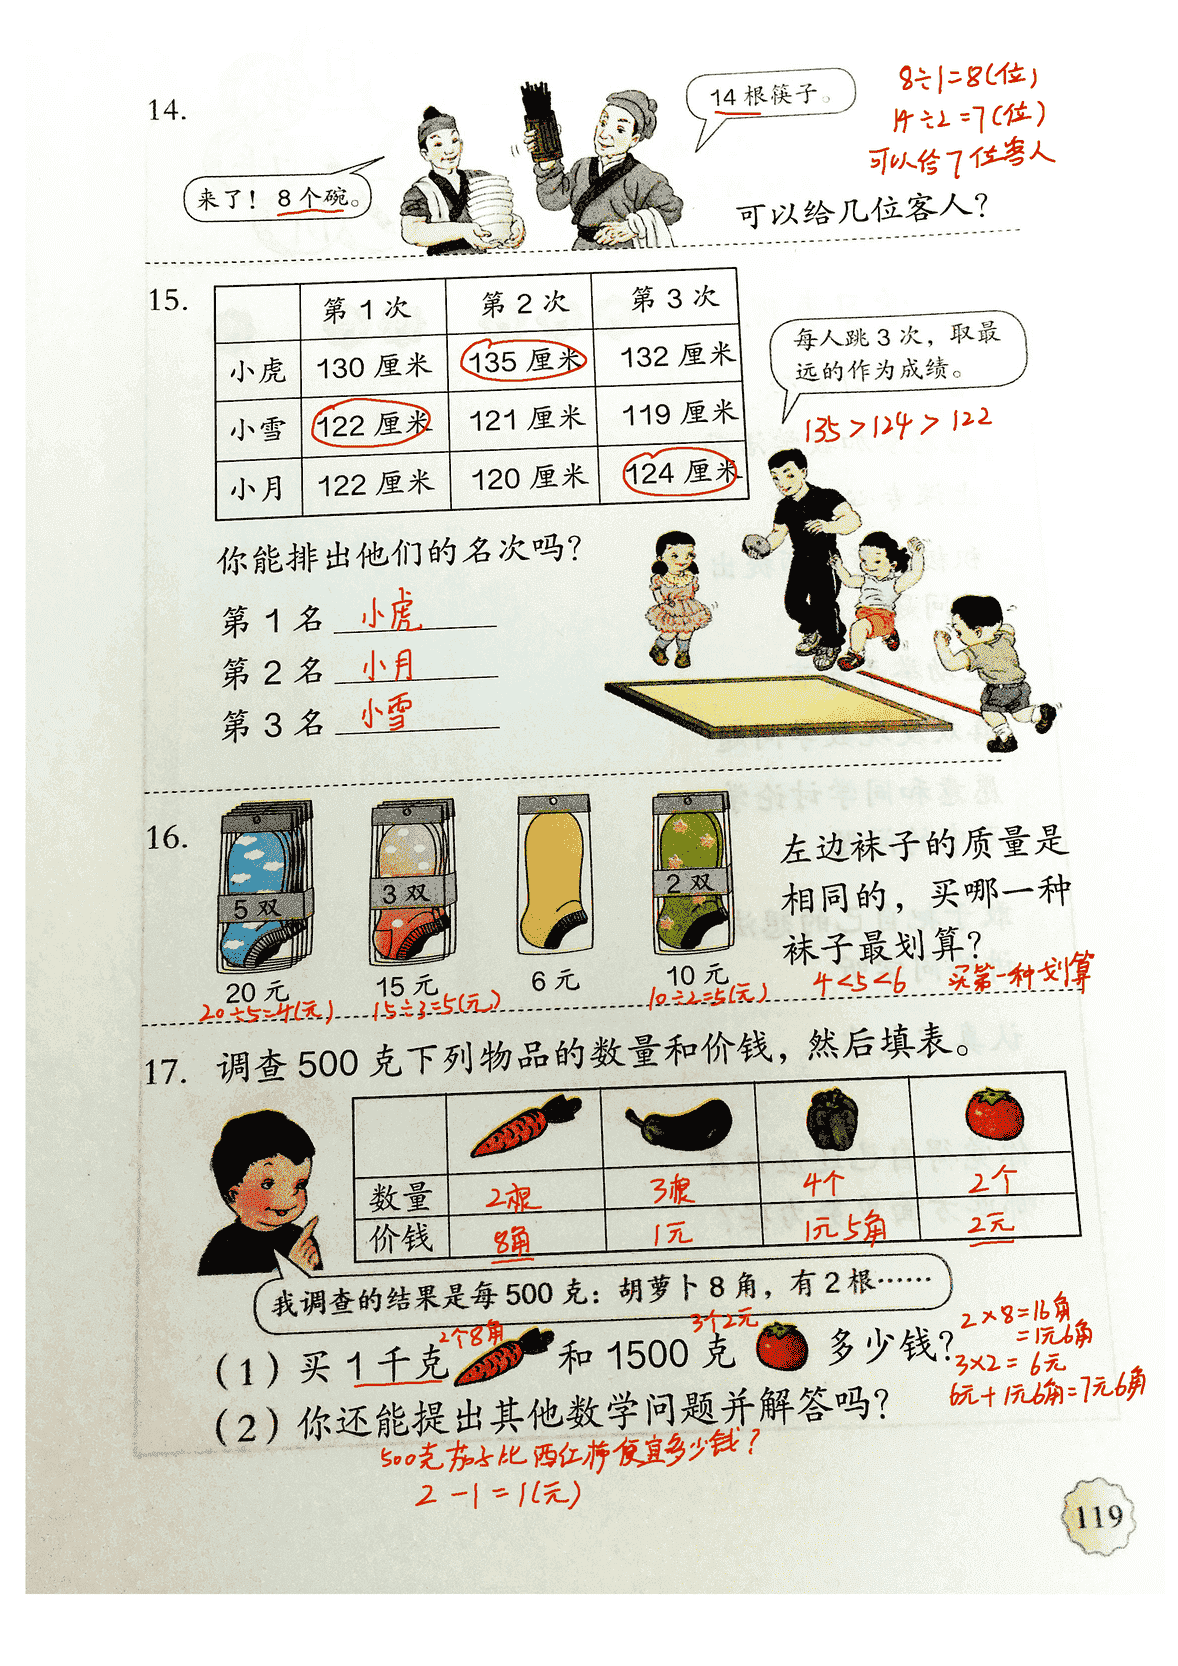 14.
14根筷子。
8÷1=8(位)
14÷2=7(位)
可以给7位客人
来了！8个碗。
可以给几位客人？
15.
第1次 第2次 第3次
小虎 130厘米 135厘米 132厘米
小雪 122厘米 121厘米 119厘米
小月 122厘米 120厘米 124厘米
每人跳3次，取最
远的作为成绩。
135>124>122
你能排出他们的名次吗？
第1名 小虎
第2名 小月
第3名 小雪
16.
5双 3双 2双
20元 15元 6元 10元
20÷5=4(元) 15÷3=5(元) 10÷2=5(元)
左边袜子的质量是
相同的，买哪一种
袜子最划算？
4<5<6 买第一种划算
17. 调查500克下列物品的数量和价钱，然后填表。
数量 2根 3根 4个 2个
价钱 8角 1元 1元5角 2元
我调查的结果是每500克：胡萝卜8角，有2根……
2个8角 3个2元
(1)买1千克 和1500克 多少钱？
2×8=16角
=1元6角
3×2=6元
6元+1元6角=7元6角
(2)你还能提出其他数学问题并解答吗？
500克茄子比西红柿便宜多少钱？
2-1=1(元)
119